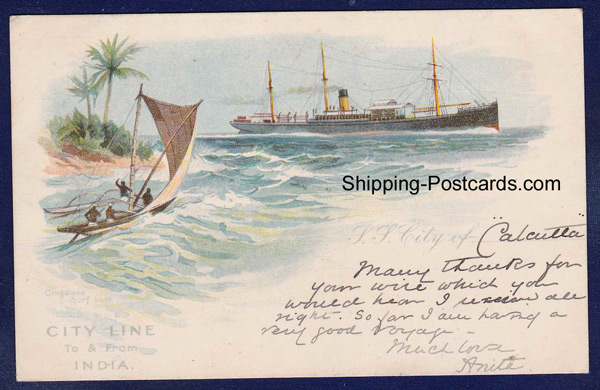 Shipping-Postcards.com
S.S. City of "Calcutta"
Many thanks for
your wire which you
would hear I all
right. So far I am having a
very good voyage -
Much love
Anita
Cingalese
Surf Boat
CITY LINE
To & From
INDIA.